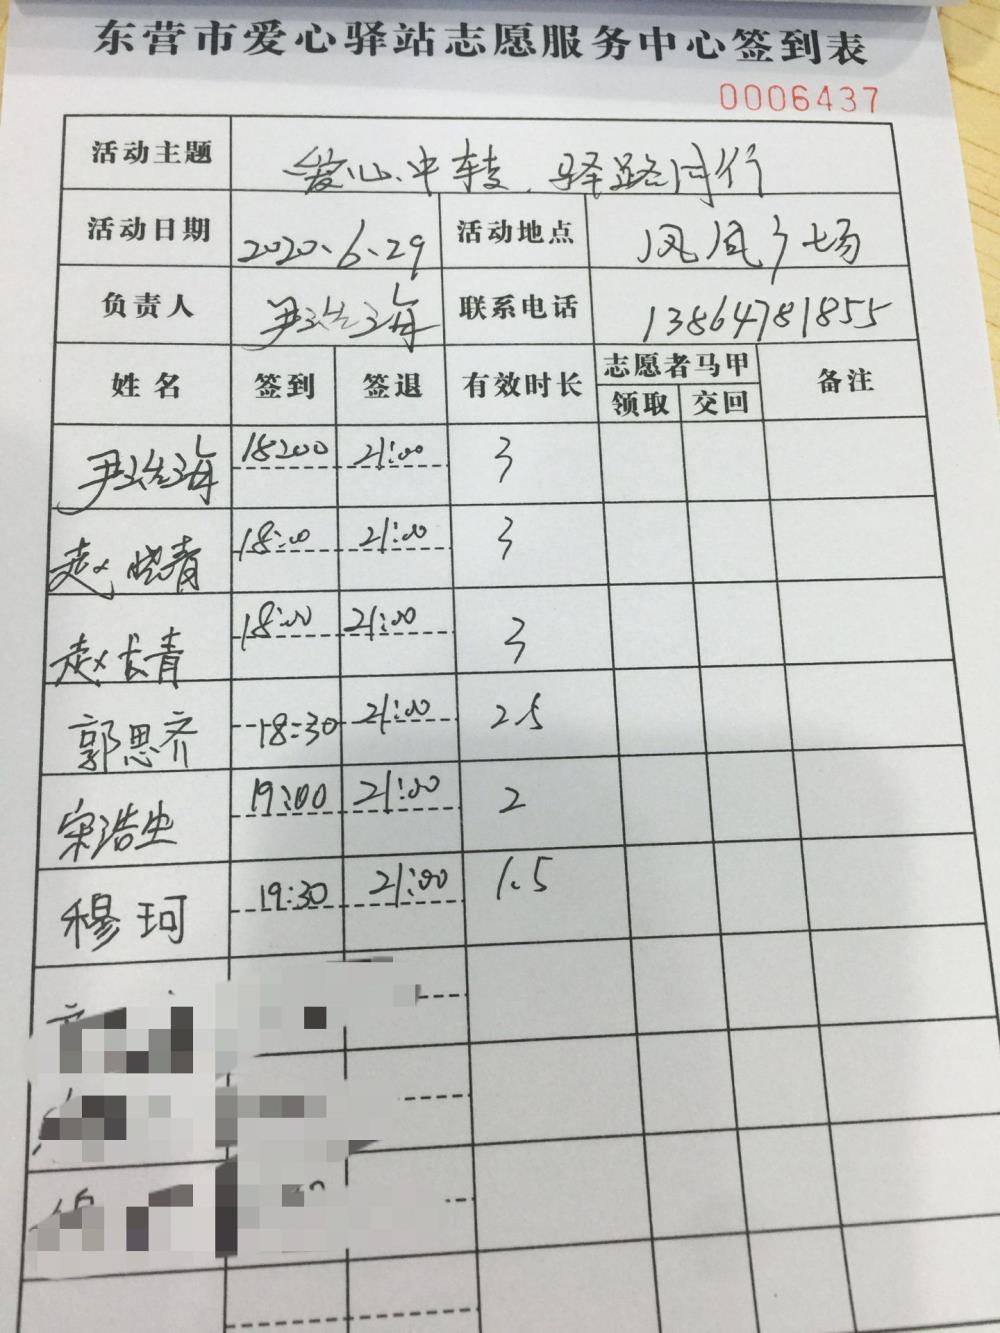 东营市爱心驿站志愿服务中心签到表
0006437
活动主题 爱心中转、驿路同行
活动日期 2020.6.29 活动地点 凤凰广场
负责人 尹海 联系电话 13864781855
姓名 签到 签退 有效时长 志愿者马甲 备注
领取 交回
尹海 18:00 21:00 3
赵晓青 18:00 21:00 3
赵长青 18:00 21:00 3
郭思齐 18:30 21:00 2.5
宋浩生 19:00 21:00 2
穆珂 19:30 21:00 1.5